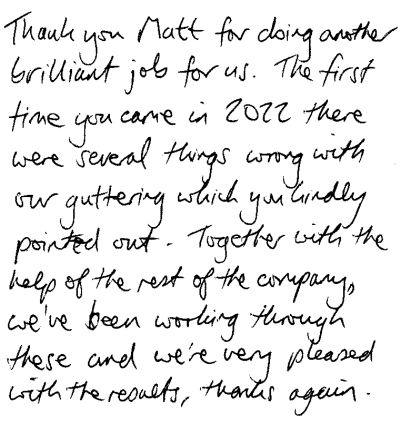 Thank you Matt for doing another
brilliant job for us. The first
time you came in 2022 there
were several things wrong with
our guttering which you kindly
pointed out. Together with the
help of the rest of the company,
we've been working through
these and we're very pleased
with the results, thanks again.